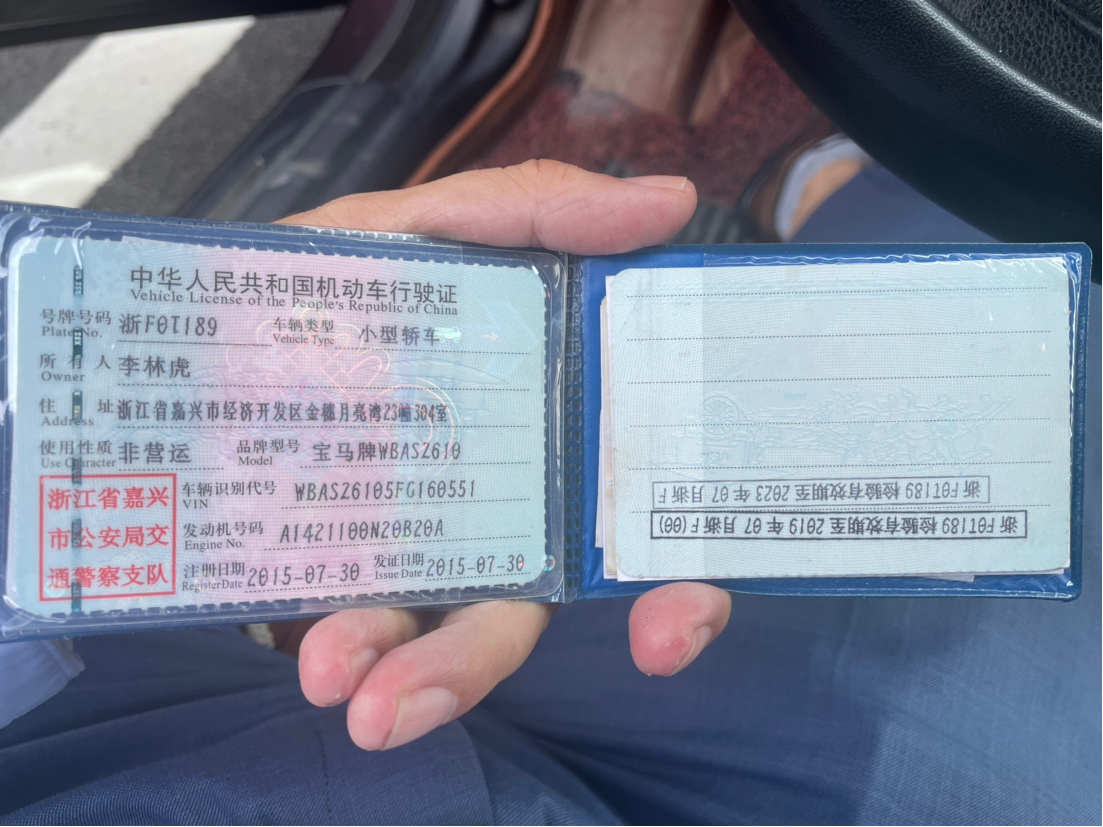 中华人民共和国机动车行驶证
Vehicle License of the People's Republic of China
号牌号码 浙F0T189 车辆类型 小型轿车
Plate No. Vehicle Type
所有人 李林虎
Owner
住址 浙江省嘉兴市经济开发区金穗月亮湾23幢304室
Address
使用性质 非营运 品牌型号 宝马牌WBASZ610
Use Character Model
浙江省嘉兴
市公安局交
通警察支队
车辆识别代号 WBASZ6105FG160551
VIN
发动机号码 A1421100N20B20A
Engine No.
注册日期 2015-07-30 发证日期 2015-07-30
Register Date Issue Date
浙F0T189 检验有效期至 2019 年 07 月 浙F(00)
浙F0T189 检验有效期至 2023 年 07 月 浙F